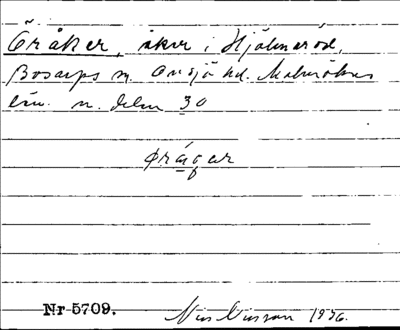 Öråker, åker i Hjälmaröd,
Bosarps sn. Onsjö hd. Malmöhus
län. n. delen 30
øråqar
Nr 5709.
Nils Nilsson 1936.